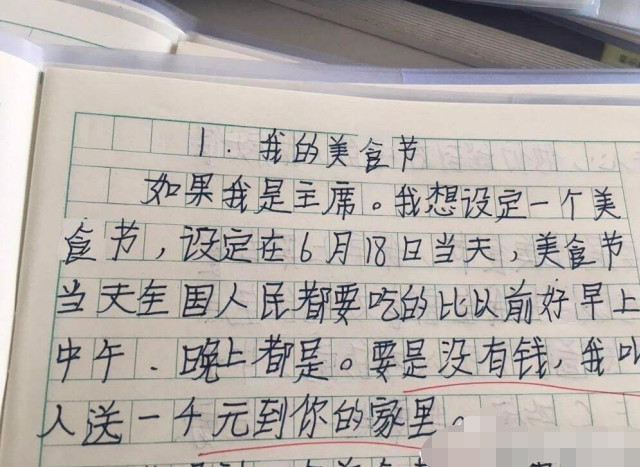 1.我的美食节
如果我是主席。我想设定一个美
食节,设定在6月18日当天,美食节
当天全国人民都要吃的比以前好早上
中午.晚上都是。要是没有钱,我叫
人送一千元到你的家里。